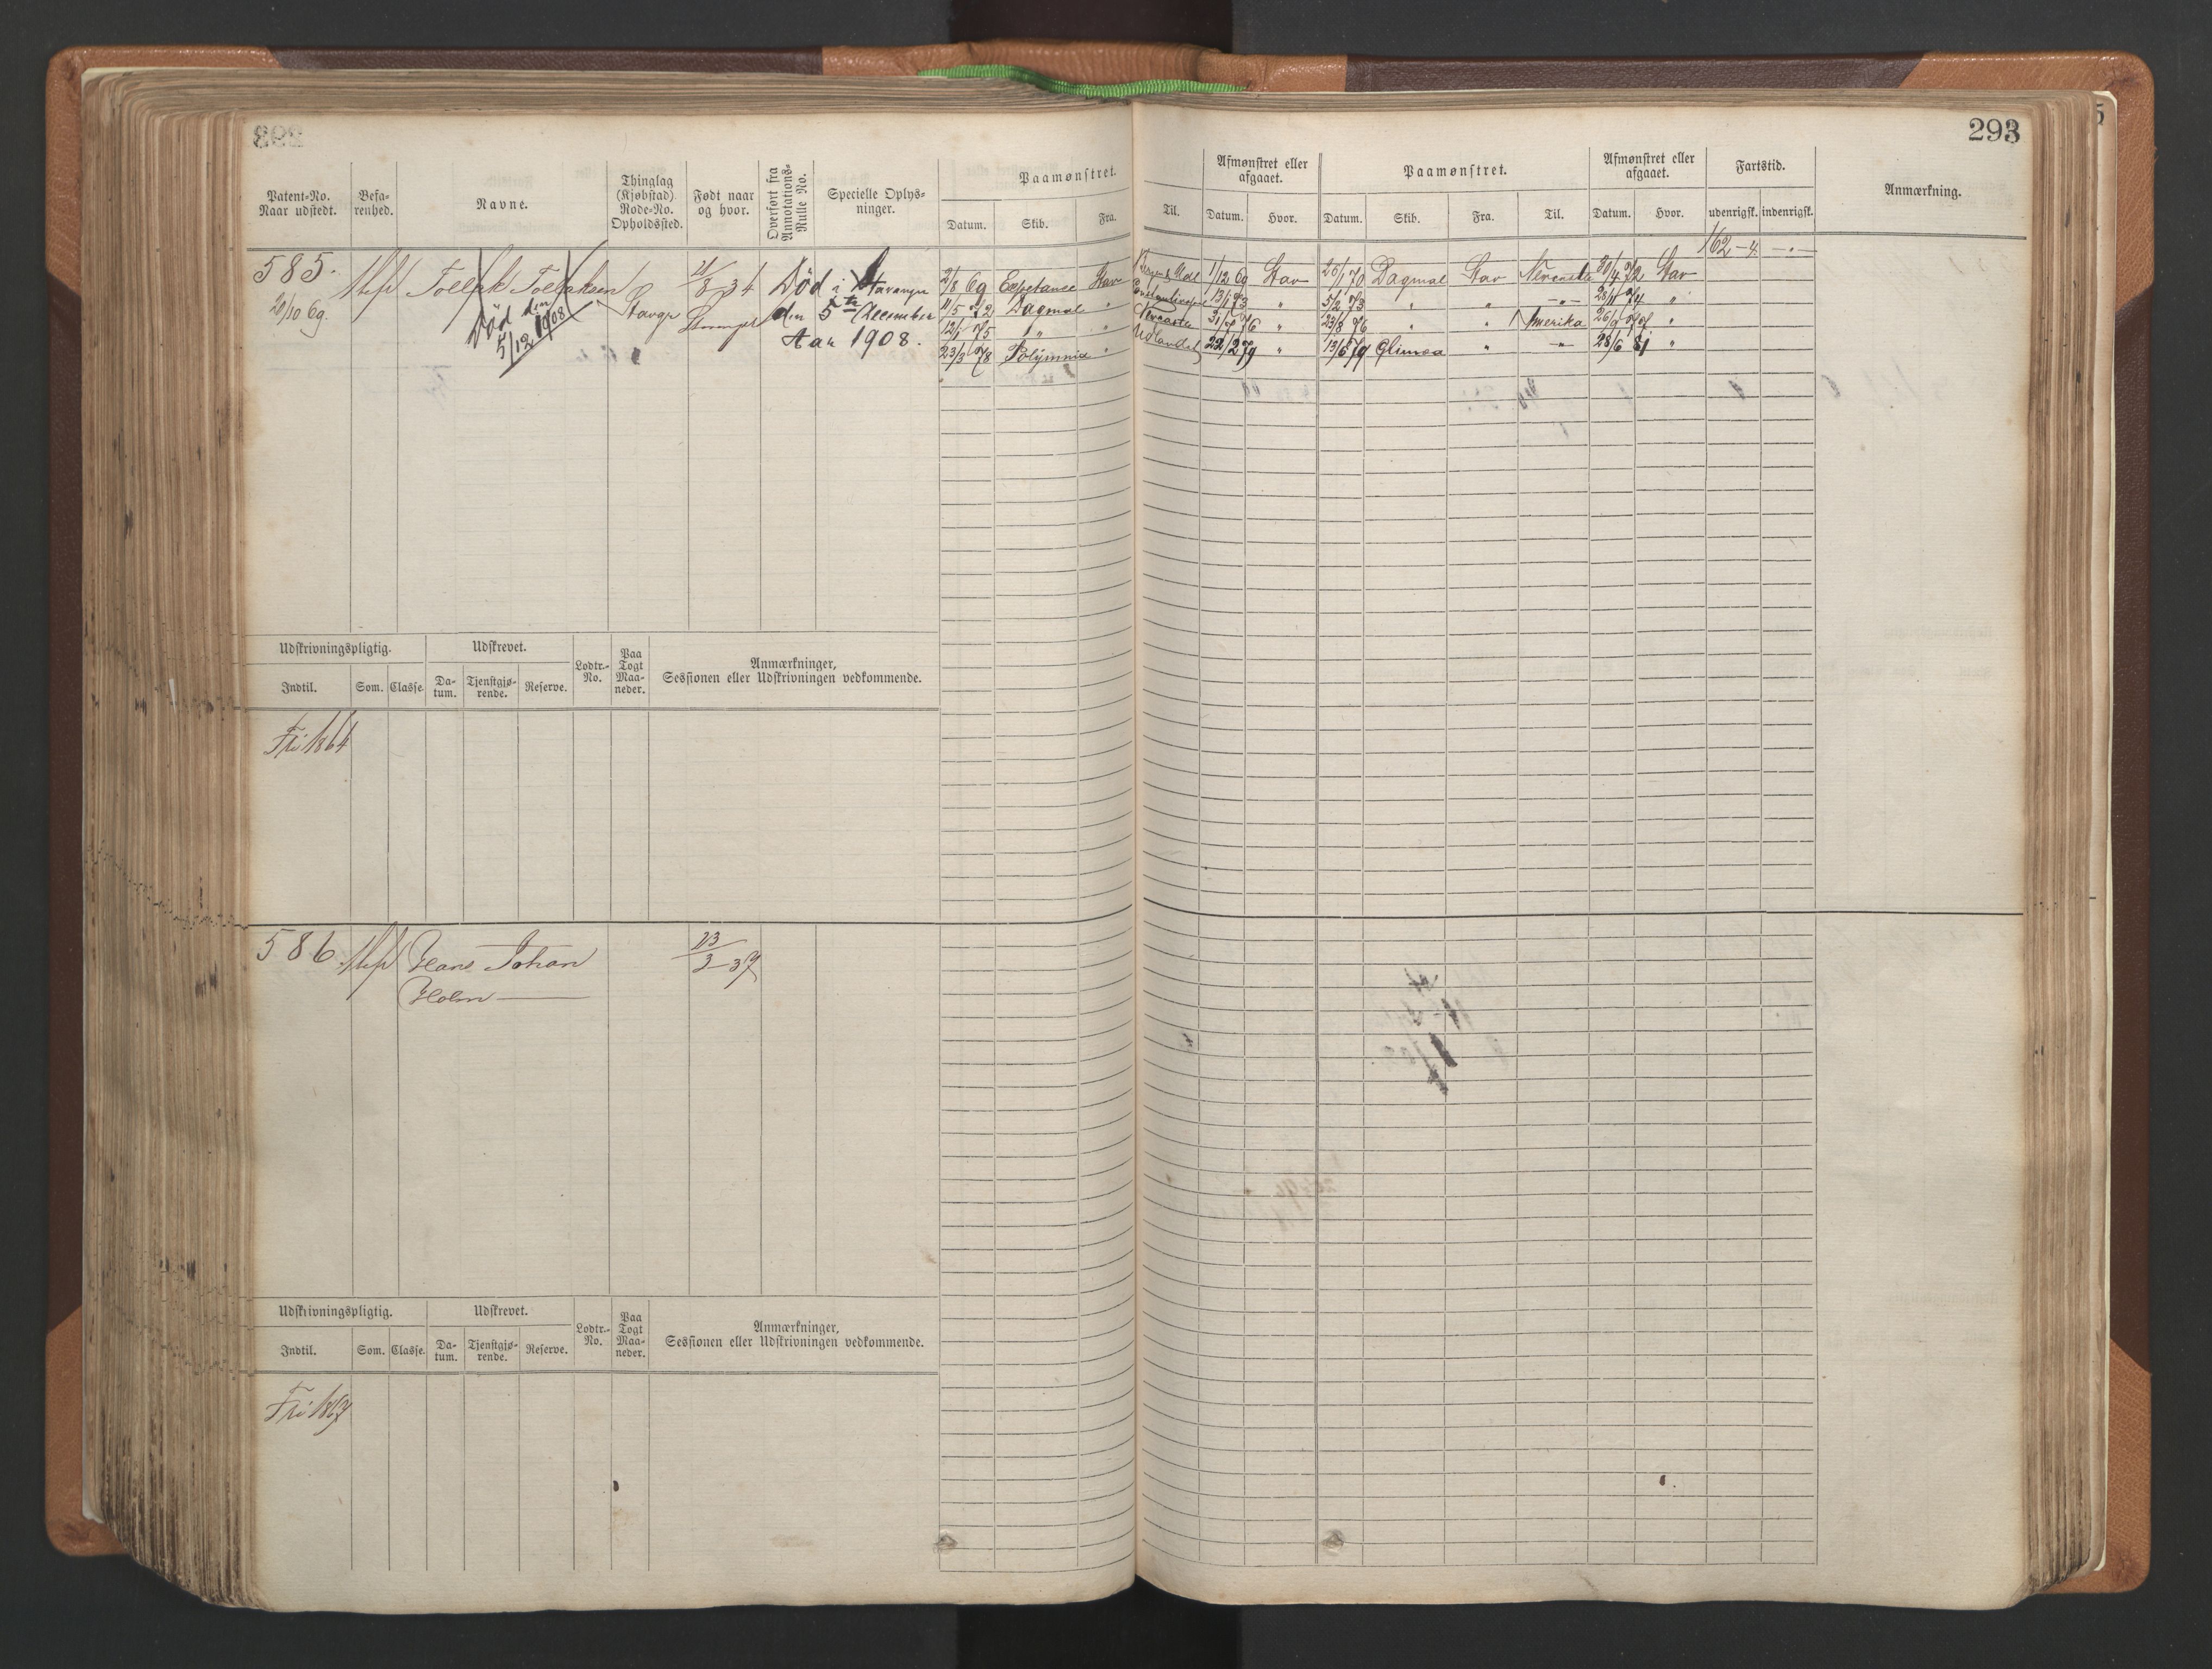 293
Patent-No.
Naar udstedt.
Befa-
renhed.
Navne.
Thinglag
(Kjøbstad)
Rode-No.
Opholdssted.
Født naar
og hvor.
Overført fra
Annotations-
Rulle No.
Specielle Oplys-
ninger.
Paamønstret.
Datum. Skib. Fra.
Til.
Afmønstret eller
afgaaet.
Datum. Hvor.
Paamønstret.
Datum. Skib. Fra. Til.
Afmønstret eller
afgaaet.
Datum. Hvor.
Fartstid.
udenrigsk. indenrigsk.
Anmærkning.
162-4 -"-
585.
20/10 69.
Død den
5/12 1908
Stavgr
21/8 34
Død i Stavanger
den 5te December
Aar 1908.
2/8 69 Esperance Stav
1/12 69 Stav 26/1 70 Dagmar Stav 30/4 72 Stav
11/5 72 Dagmar "
13/1 73 " 5/2 73 " " -"- 28/11 74 "
12/1 75 " "
31/7 76 " 23/8 76 " " Amerika 26/9 77 "
23/3 78 Polymnia "
Udlandet 22/2 79 " 13/5 79 Glimea " -"- 28/6 81 "
Udskrivningspligtig.
Indtil. Som. Classe.
Udskrevet.
Da-
tum.
Tjenstgjø-
rende.
Reserve.
Lodtr.-
No.
Paa
Togt
Maa-
neder.
Anmærkninger,
Sessionen eller Udskrivningen vedkommende.
Fri 1864
586
Hans Johan
Holm
23/3 37
Udskrivningspligtig.
Indtil. Som. Classe.
Udskrevet.
Da-
tum.
Tjenstgjø-
rende.
Reserve.
Lodtr.-
No.
Paa
Togt
Maa-
neder.
Anmærkninger,
Sessionen eller Udskrivningen vedkommende.
Fri 1867